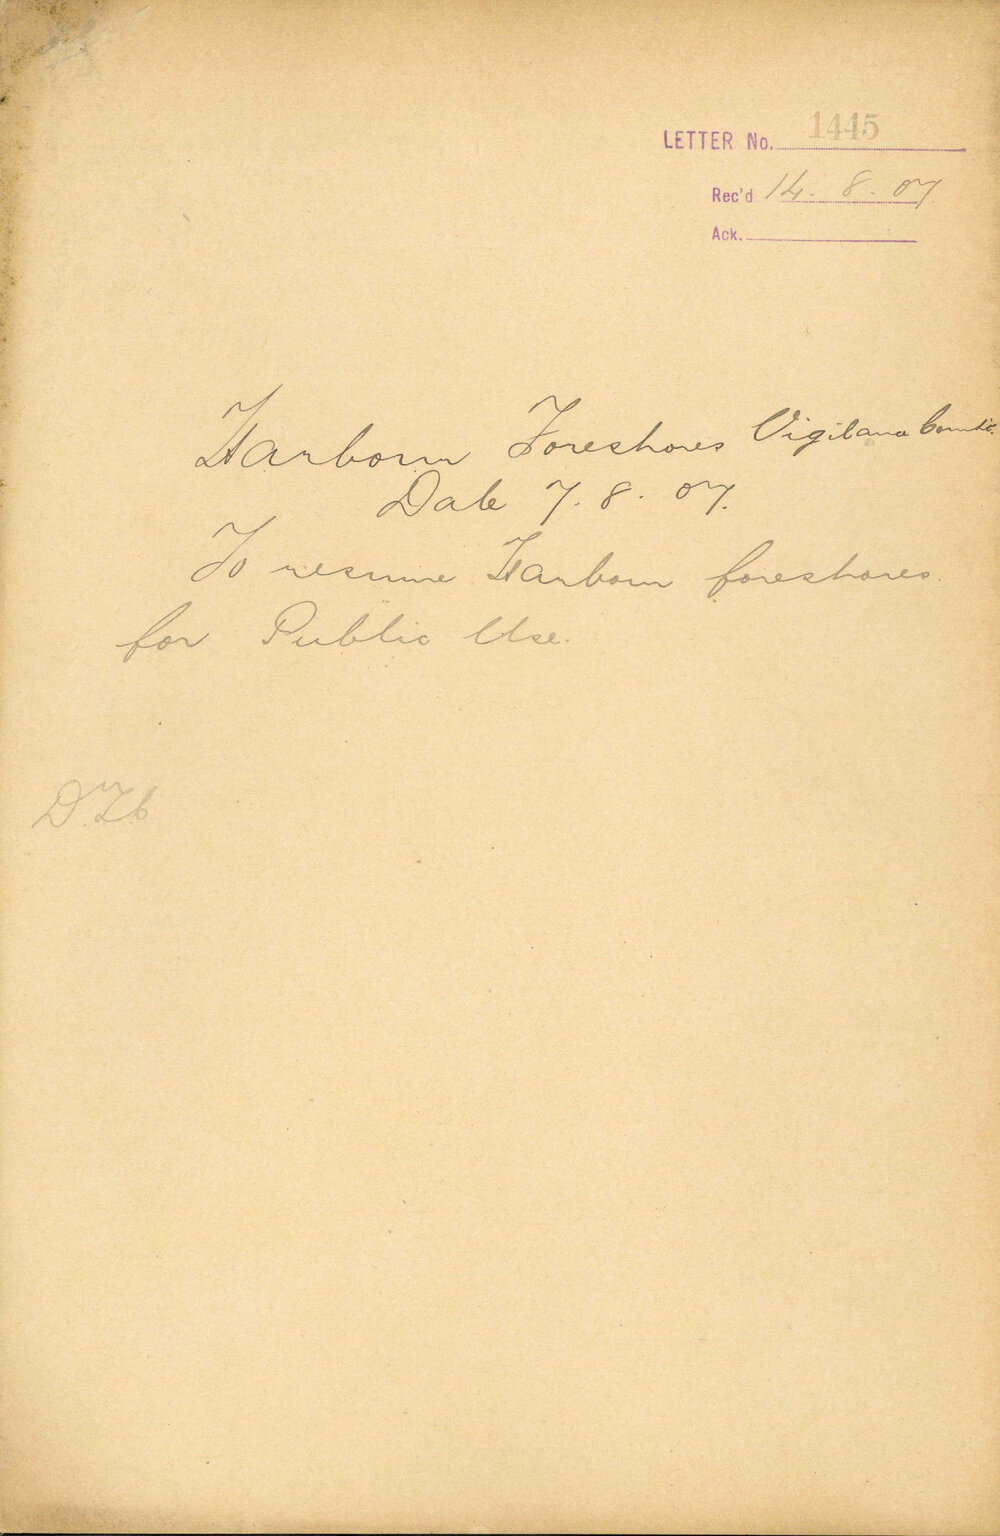 LETTER No. 1445
Rec'd 14. 8. 07.
Ack.
Harbour Foreshores Vigilance
Date 7. 8. 07.
To resume Harbour foreshores.
for Public Use.